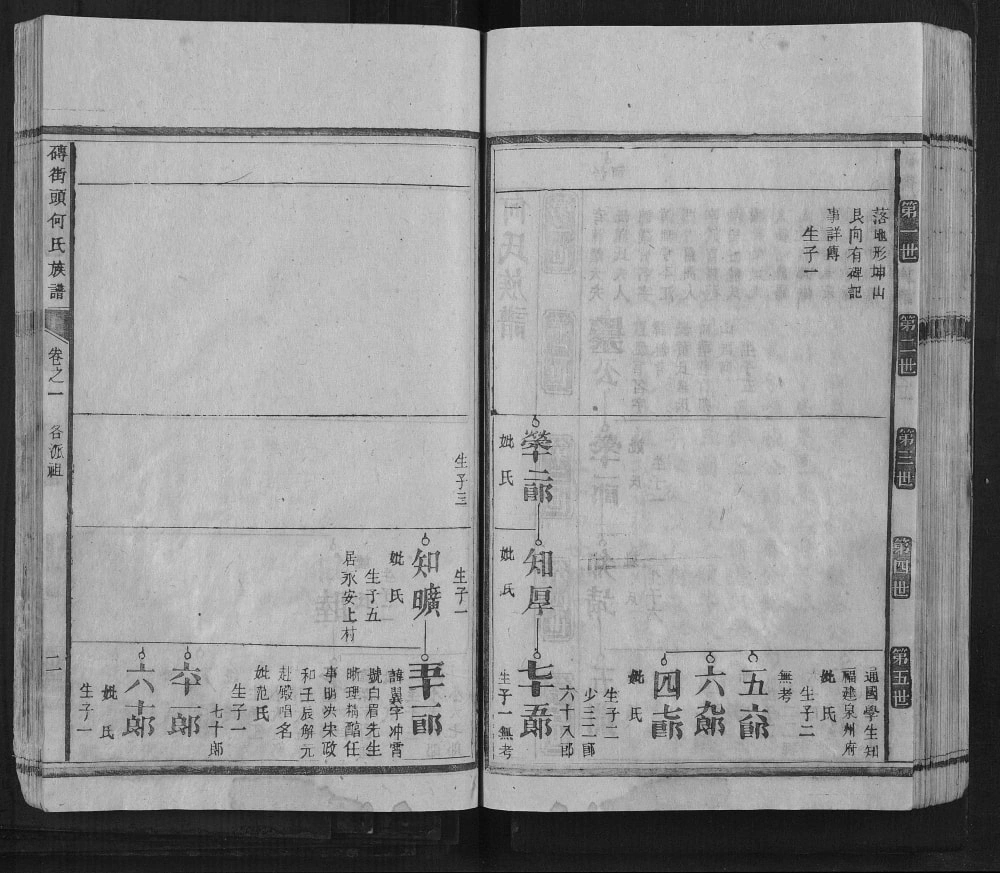 第一世
第二世
第三世
第四世
第五世
落地形坤山
艮向有碑記
事詳傳
生子一
通國學生知
福建泉州府
妣氏
生子二
無考
五六郎
六九郎
四七郎
妣氏
生子二
少三二郎
六十八郎
榮十二郎
妣氏
知厚
妣氏
七十五郎
生子一無考
生子三
生子一
知曠
妣氏
生子五
居永安上村
五十一郎
諱翼字冲霄
號白眉先生
晰理精醋任
事明决宋政
和壬辰解元
赴殿唱名
妣范氏
生子一
七十郎
六十一郎
六十郎
妣氏
生子一
磚街頭何氏族譜
卷之一
各派祖
二